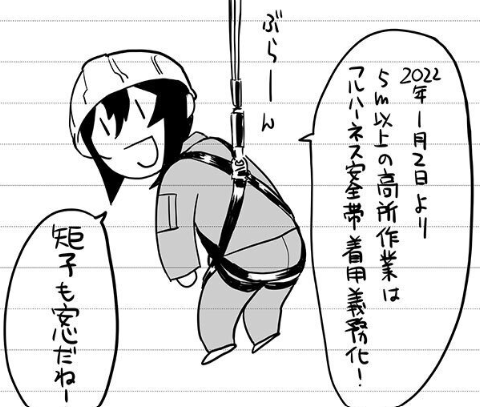 2022年1月2日より
5m以上の高所作業は
フルハーネス安全帯着用義務化!
ぶらーん
矩子も安心だねー